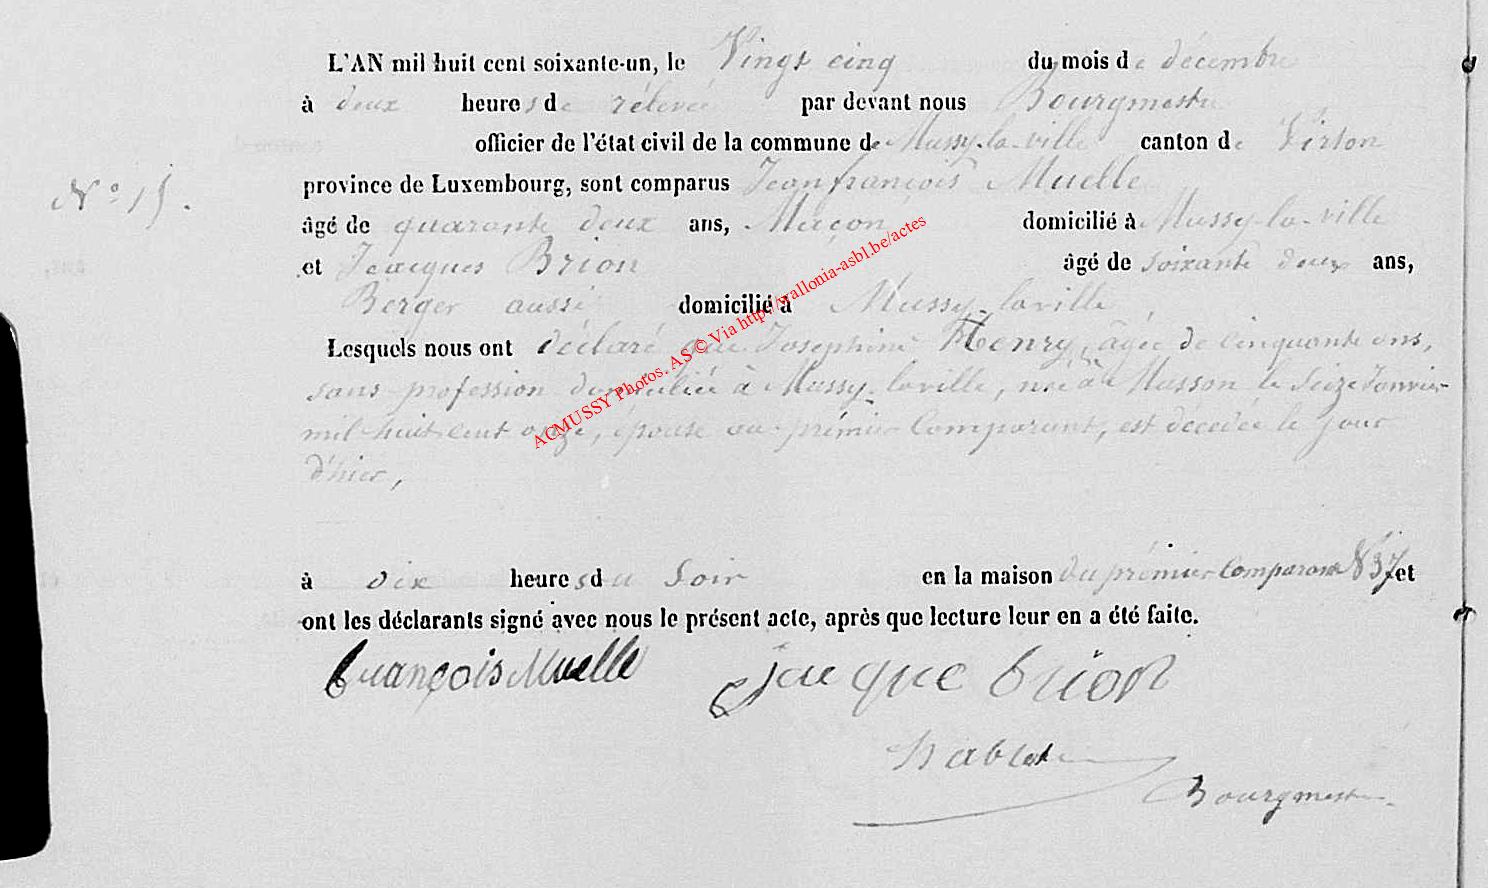 L'AN mil huit cent soixante-un, le Vingt cinq du mois de décembre
à deux heures de rélevée par devant nous Bourgmestre
officier de l'état civil de la commune de Mussy-la-ville canton de Virton
N° 15.
province de Luxembourg, sont comparus Jean françois Muelle
âgé de quarante deux ans, Maçon, domicilié à Mussy-la-ville
et Jacques Brion âgé de soixante deux ans,
Berger aussi domicilié à Mussy-laville,
Lesquels nous ont déclaré que Josephine Henry, âgée de Cinquante ans,
sans profession domiciliée à Mussy-laville, née à Musson le Seize Janvier
mil huit cent onze, épouse au prémier Comparant, est décedée le jour
d'hier,
à dix heures du Soir en la maison du prémier Comparant N° 37 et
ont les déclarants signé avec nous le présent acte, après que lecture leur en a été faite.
François Muelle jacque brion
Bourgmestre
ACMUSSY Photos. AS © Via http://wallonia-asbl.be/actes